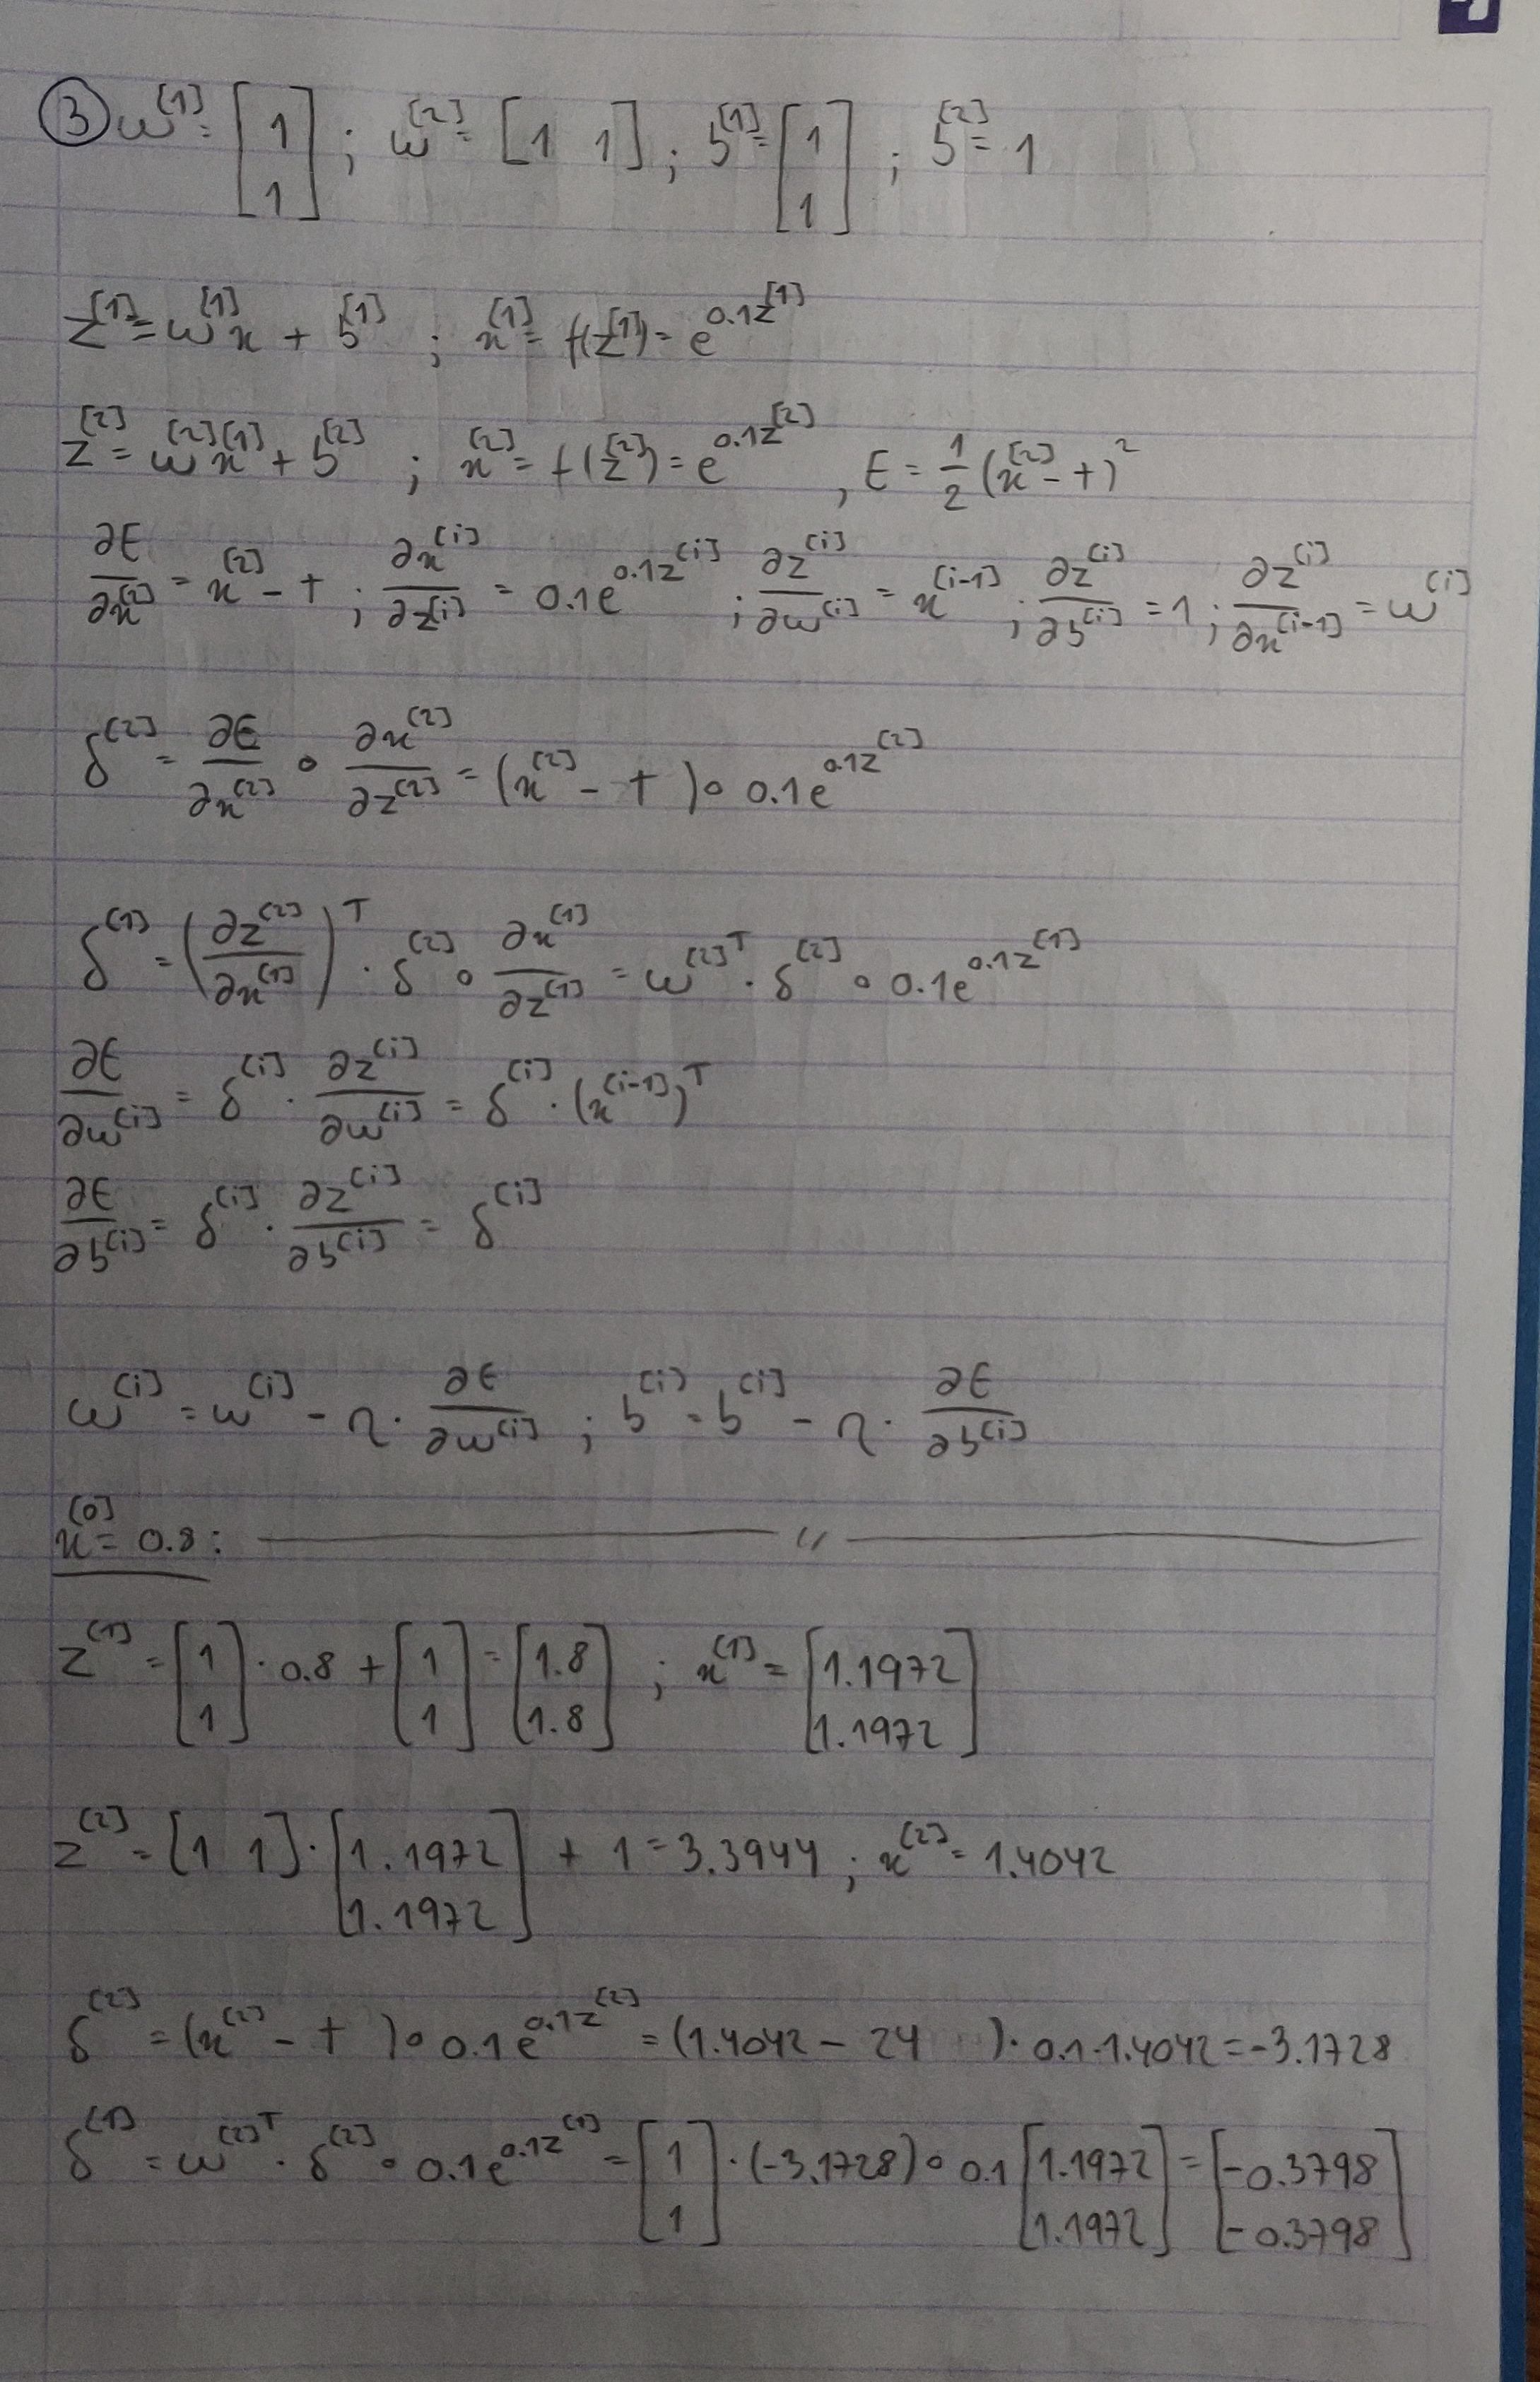 ③ w^[1] = [1 1] ; w^[2] = [1 1] ; b^[1] = [1 1] ; b^[2] = 1
z^[1] = w^[1] x + b^[1] ; x^[1] = f(z^[1]) = e^0.1z^[1]
z^[2] = w^[2] x^[1] + b^[2] ; x^[2] = f(z^[2]) = e^0.1z^[2] , E = 1/2 (x^[2] - t)^2
∂E/∂x^[2] = x^[2] - t ; ∂x^[i]/∂z^[i] = 0.1e^0.1z^[i] ; ∂z^[i]/∂w^[i] = x^[i-1] ; ∂z^[i]/∂b^[i] = 1 ; ∂z^[i]/∂x^[i-1] = w^[i]
δ^[2] = ∂E/∂x^[2] ∘ ∂x^[2]/∂z^[2] = (x^[2] - t) ∘ 0.1e^0.1z^[2]
δ^[1] = (∂z^[2]/∂x^[1])^T · δ^[2] ∘ ∂x^[1]/∂z^[1] = w^[2]^T · δ^[2] ∘ 0.1e^0.1z^[1]
∂E/∂w^[i] = δ^[i] · ∂z^[i]/∂w^[i] = δ^[i] · (x^[i-1])^T
∂E/∂b^[i] = δ^[i] · ∂z^[i]/∂b^[i] = δ^[i]
w^[i] = w^[i] - η · ∂E/∂w^[i] ; b^[i] = b^[i] - η · ∂E/∂b^[i]
x^[0] = 0.8 : —— 〃 ——
z^[1] = [1 1] · 0.8 + [1 1] = [1.8 1.8] ; x^[1] = [1.1972 1.1972]
z^[2] = [1 1] · [1.1972 1.1972] + 1 = 3.3944 ; x^[2] = 1.4042
δ^[2] = (x^[2] - t) ∘ 0.1e^0.1z^[2] = (1.4042 - 24) · 0.1 · 1.4042 = -3.1728
δ^[1] = w^[2]^T · δ^[2] ∘ 0.1e^0.1z^[1] = [1 1] · (-3.1728) ∘ 0.1 [1.1972 1.1972] = [-0.3798 -0.3798]